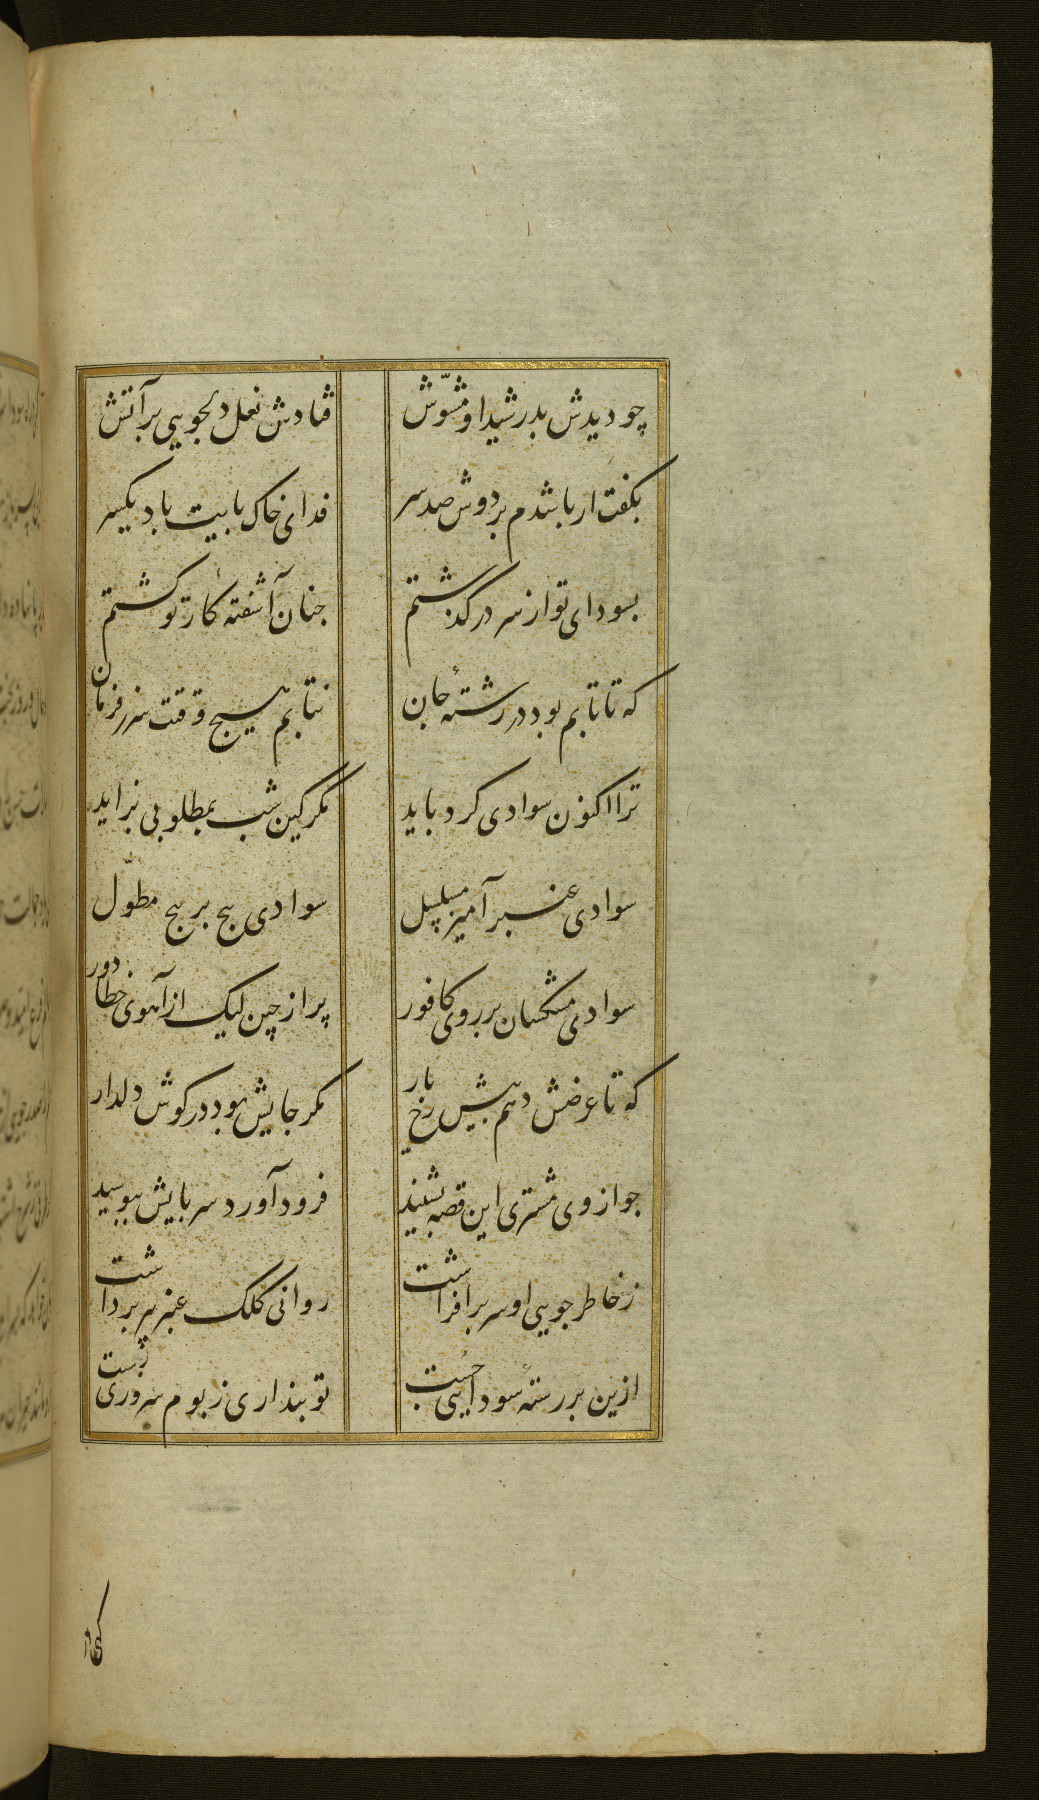 چو دیدش بدر شیدا و مشوّش فتادش نعل دلجویی بر آتش
بگفت ار باشدم بر دوش صد سر فدای خاک بایت باد یکسر
بسودای تو از سر در گذشتم جنان آشفتهٔ کار تو گشتم
که تا تابم بود در رشتهٔ جان نتابم هیچ وقت سر ز فرمان
ترا اکنون سوادی کرد باید مکر کین شب بمطلوبی بزاید
سوادی عنبر آمیز مسلسل سوادی بیج بر بیج مطوّل
سوادی مشکسان بر روی کافور پر از چین لیک از آهوی خطا دور
که تا عرضش دهم بیش رخ یار مکر جایش بود در کوش دلدار
جو از وی مشتری این قصه بشنید فرود آورد سر بایش ببوسید
ز خاطر جویی او سر برافراشت روانی کلک عنبر بر برداشت
ازین بر رستهٔ سودایی جست تو بنداری ز بوم سروری رست